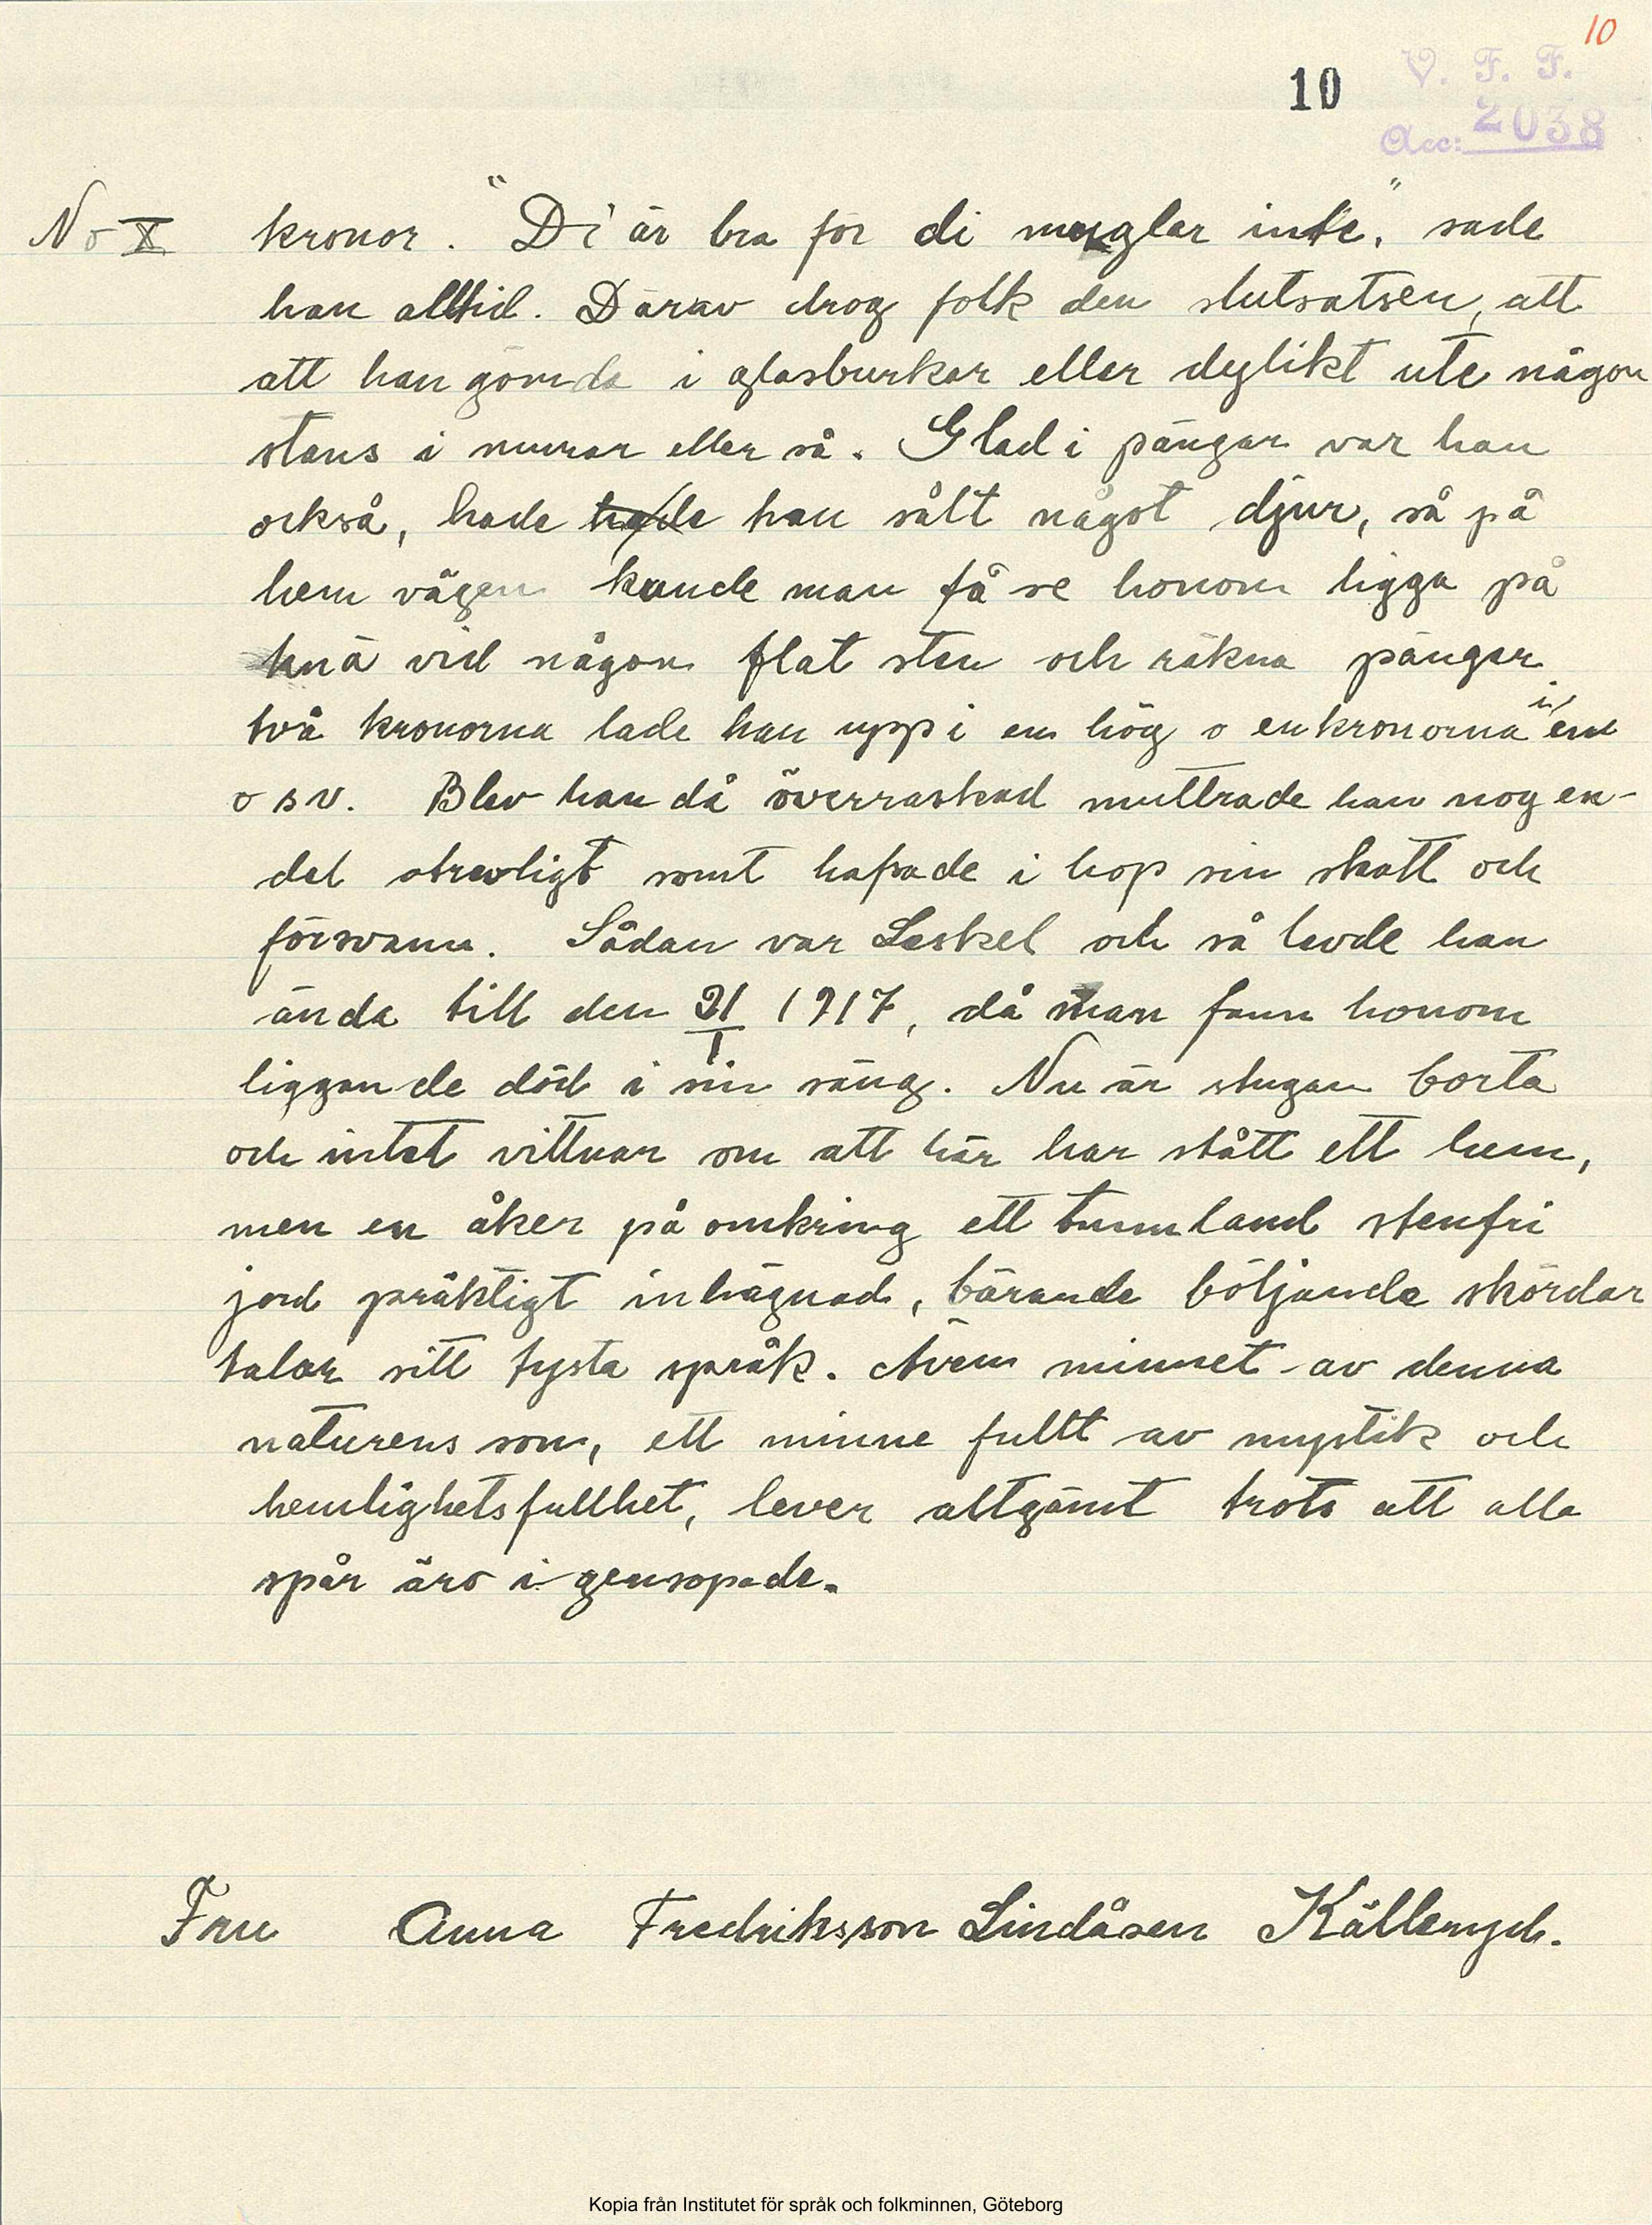 10
10
V. F. F.
Acc: 2038
No X kronor. "Di är bra för di muglar inte," sade
han alltid. Därav drog folk den slutsatsen, att
att han gömde i glasburkar eller dylikt ute någon
stans i murar eller så. Glad i pängar var han
också, hade hade han sålt något djur, så på
hem vägen kunde man få se honom ligga på
knä vid någon flat sten och räkna pängar.
två kronorna lade han upp i en hög o enkronorna i en
o s v. Blev han då överraskad muttrade han nog en-
del strevligt samt hafsade i hop sin skatt och
försvann. Sådan var Laskel och så levde han
ända till den 21/1 1917, då man fann honom
liggande död i sin säng. Nu är stugan borta
och intet vittnar om att här har stått ett hem,
men en åker på omkring ett tunnland stenfri
jord präktigt inhägnad, bärande böljande skördar
talar sitt tysta språk. Även minnet av denna
naturens son, ett minne fullt av mystik och
hemlighetsfullhet, lever altgämt trots att alla
spår äro i gensopade.
Fru Anna Fredriksson Lindåsen Källeryd.
Kopia från Institutet för språk och folkminnen, Göteborg